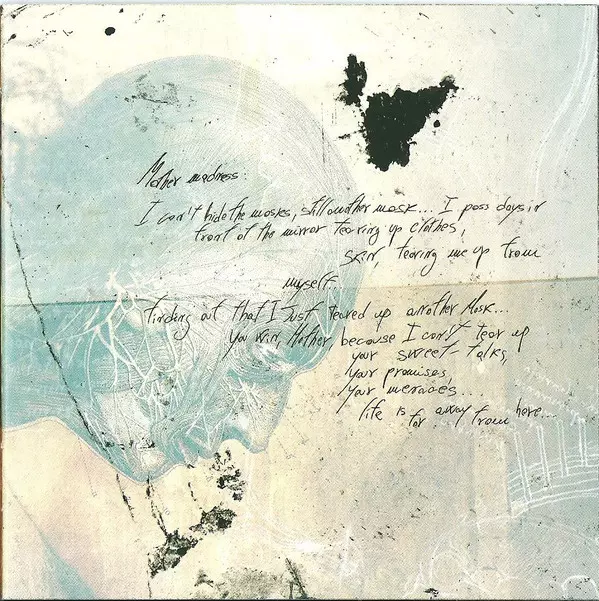 Mother madness:
I can't hide the masks, still another mask... I pass days in
front of the mirror tearing up clothes,
skin, tearing me up from
myself...
finding out that I just teared up another Mask...
you win, Mother because I can't tear up
your sweet-talks,
your promises,
your menaces....
life is far away from here...